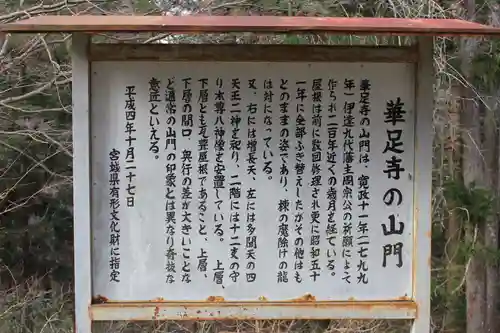 華足寺の山門
華足寺の山門は、寛政十一年(一七九九
年)伊達九代藩主周宗公の祈願によって
作られ二百年近くの歳月を経ている。
屋根は前に数回修理され更に昭和五十
一年に全部ふき替えしたがその他はも
とのままの姿であり、棟の魔除けの龍
は対になっている。
又、右には増長天、左には多聞天の四
天王二神を祀り、二階には十二支の守
り本尊八神像を安置している。上層
下層とも瓦葺屋根であること、上層、
下層の間口、奥行の差が大きいことな
ど通常の山門の印象とは異なり奇抜な
意匠といえる。
平成四年十月二十七日
宮城県有形文化財に指定